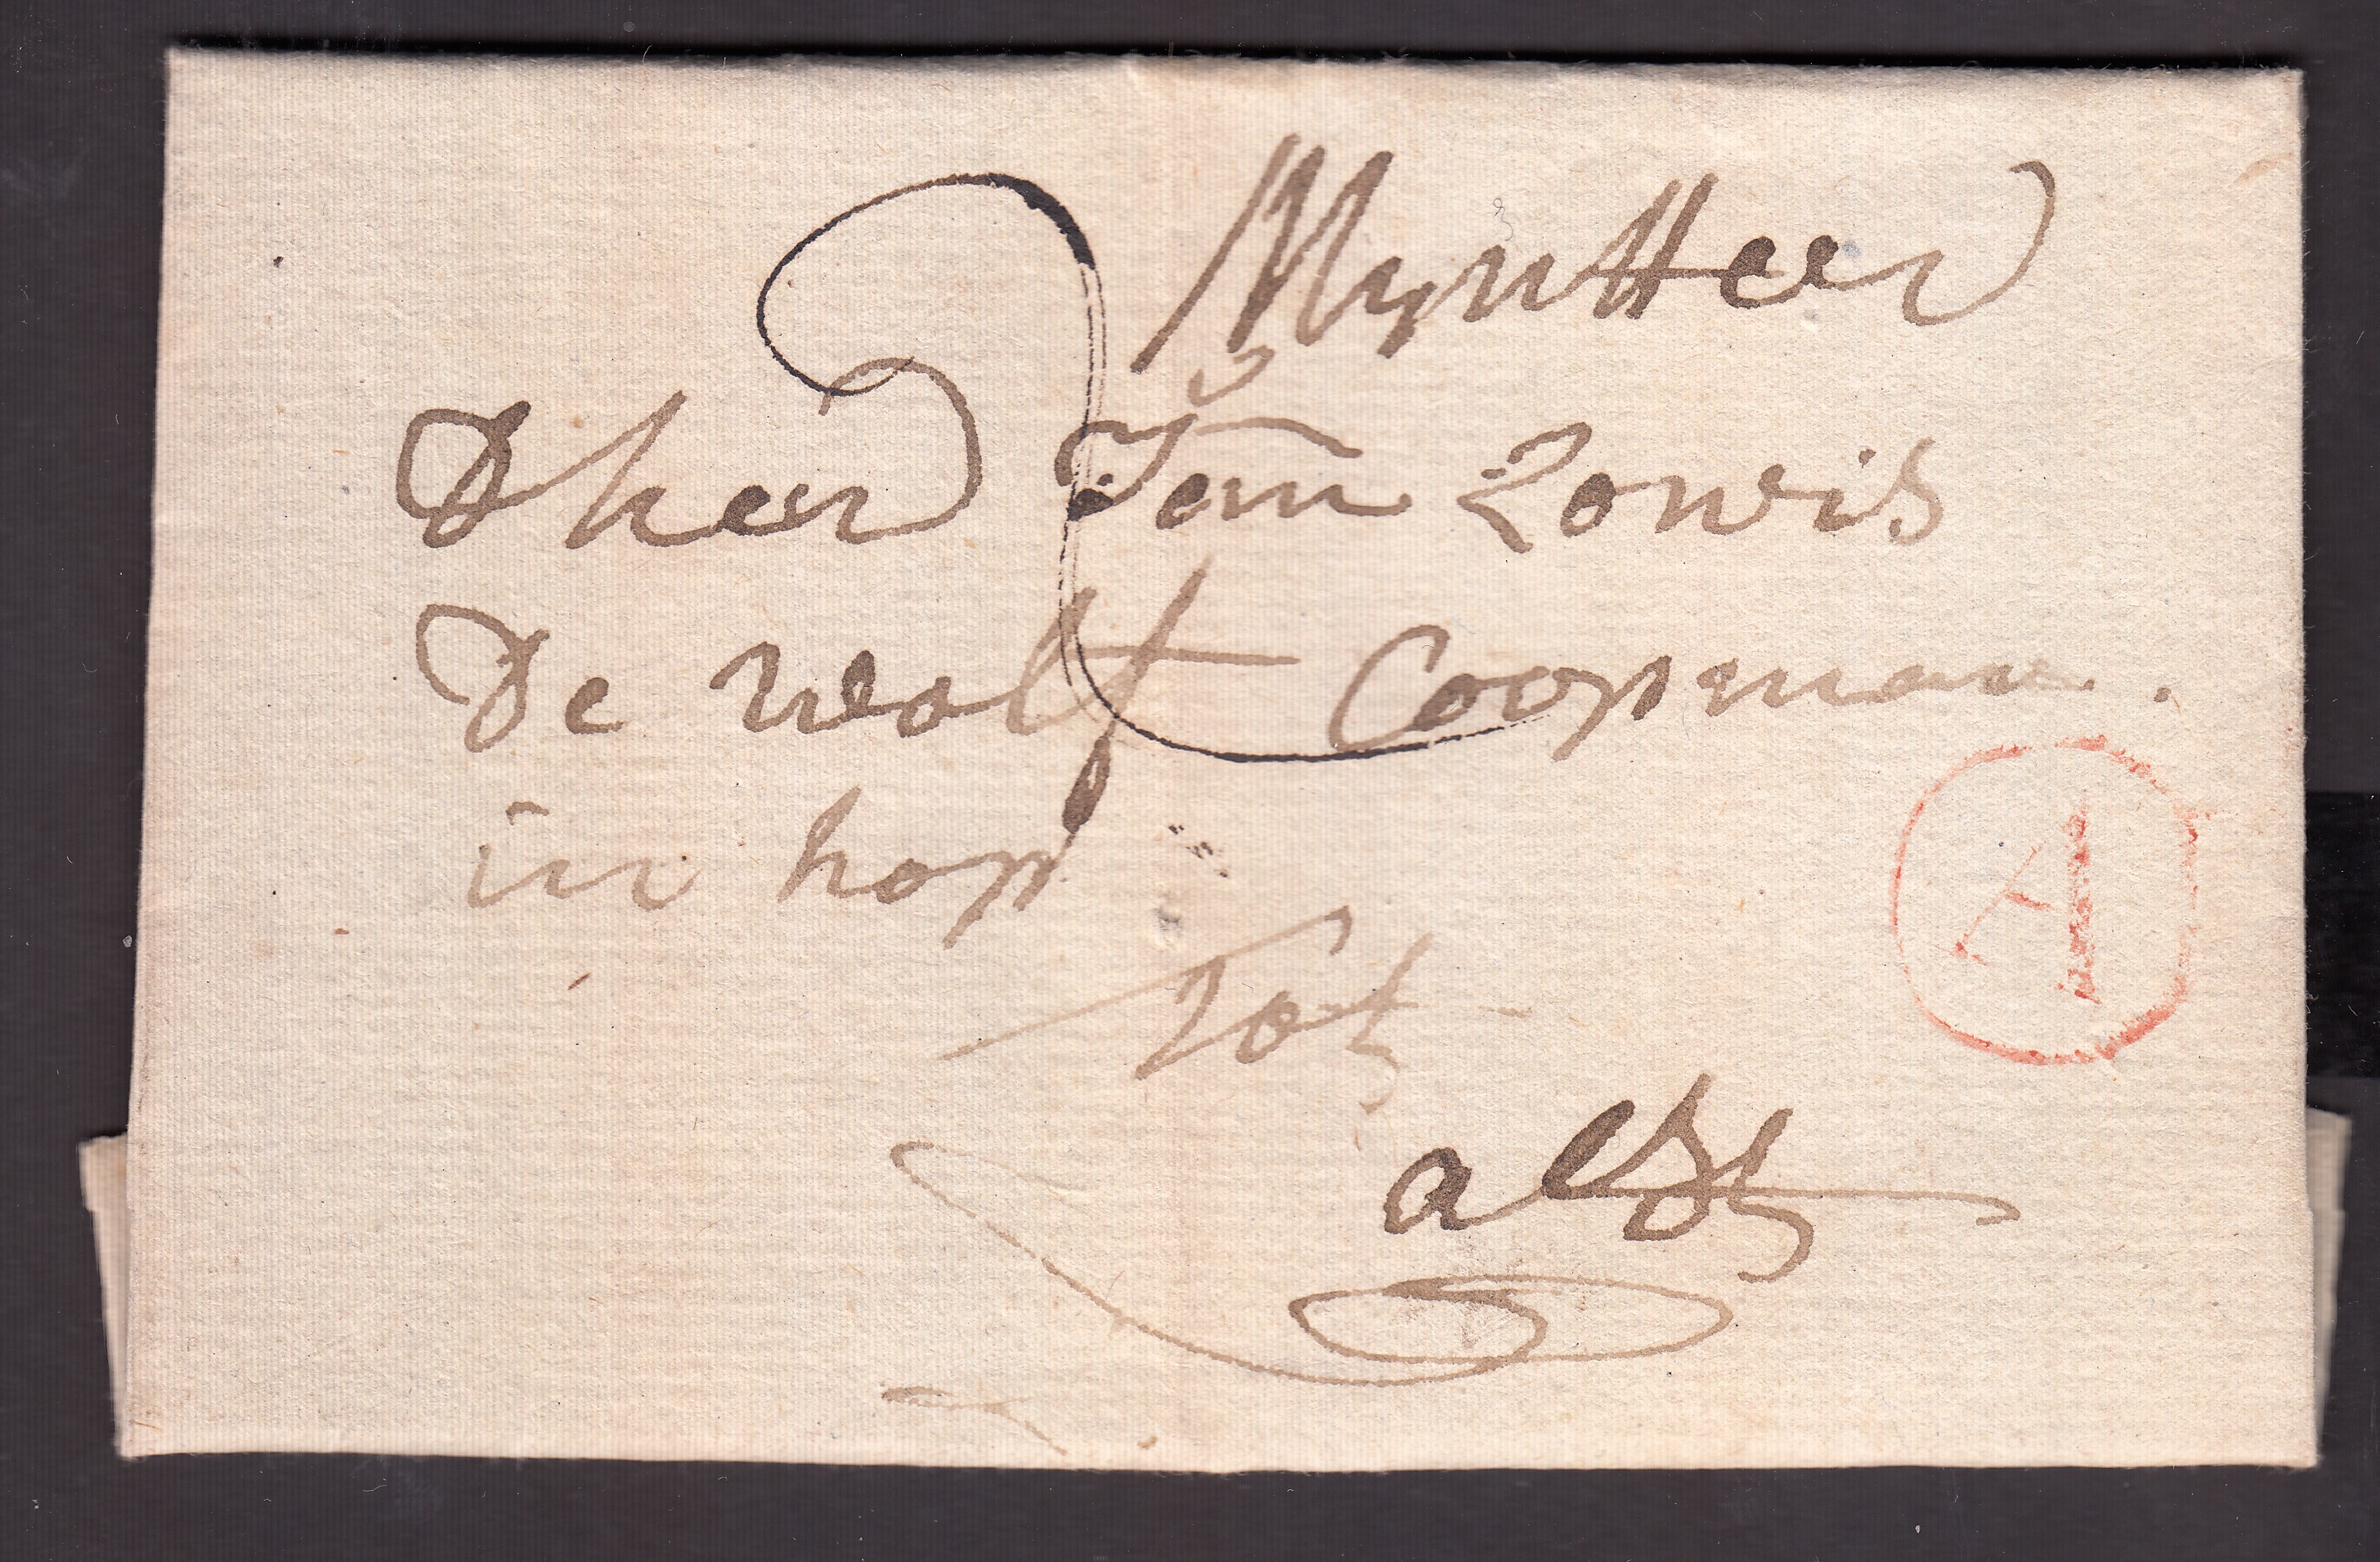 MynHeer
Dheer Jan Lowis
De Wolf Coopman.
in hop
A
Tot
alost